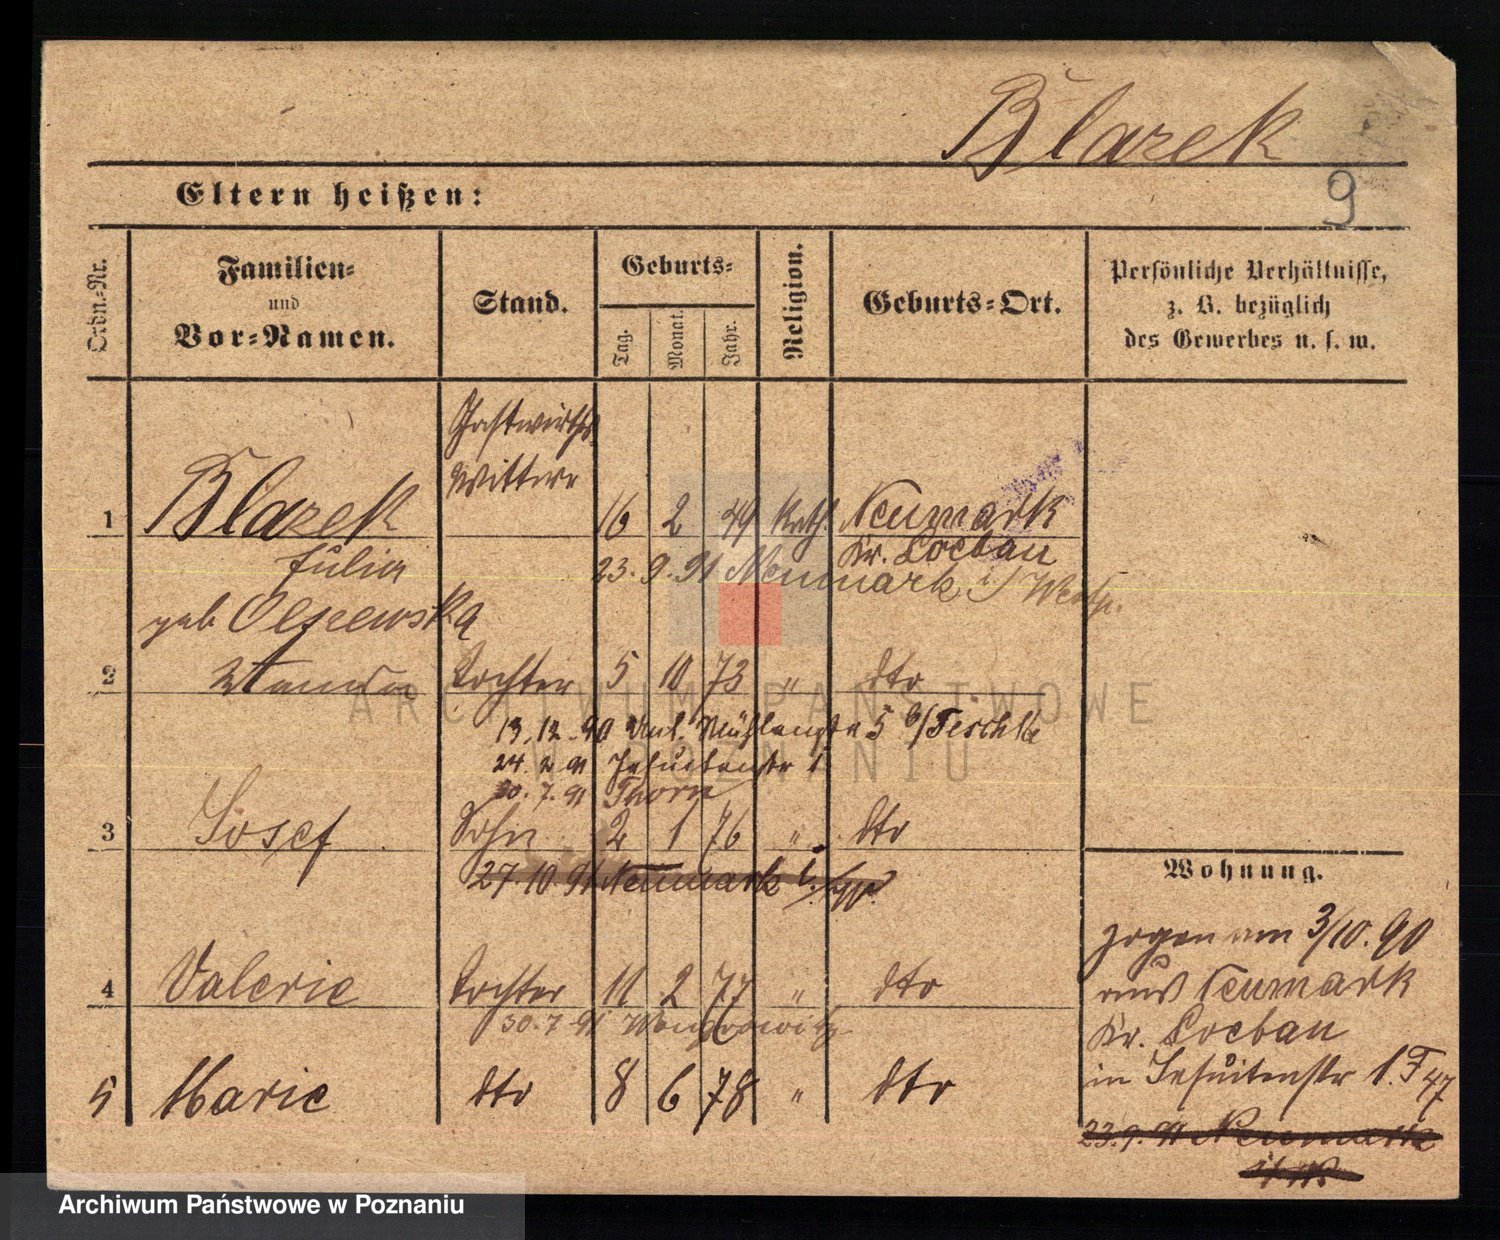 Blazek
9
Eltern heißen:
Ordn.-Nr.
Familien-
und
Vor-Namen.
Stand.
Geburts-
Tag.
Monat.
Jahr.
Religion.
Geburts-Ort.
Persönliche Verhältnisse,
z. B. bezüglich
des Gewerbes u. s. w.
Gastwirths
Wittwe
1 Blazek 16 2 49 Kath. Neumark
Kr. Loebau
Julia 23. 9. 91 Neumark i/ Westp.
geb Olszewska
2 Wanda Tochter 5 10 73 " dto
13. 12. 90 Unt. Mühlenstr 5 b/Teschke
24. 2. 91 Jesuitenstr 1
30. 7. 91 Thorn
3 Josef Sohn 2 1 76 " dto
27. 10. 91 Neumark
4 Valerie Tochter 11 2 77 " dto
30. 7. 91 Wongrowitz
5 Marie dto 8 6 78 " dto
Wohnung.
zogen am 3/10. 90
aus Neumark
Kr. Loebau
in Jesuitenstr 1. F 47
23. 9. 91 Neumark
i/ W.
ARCHIWUM PAŃSTWOWE
W POZNANIU
Archiwum Państwowe w Poznaniu